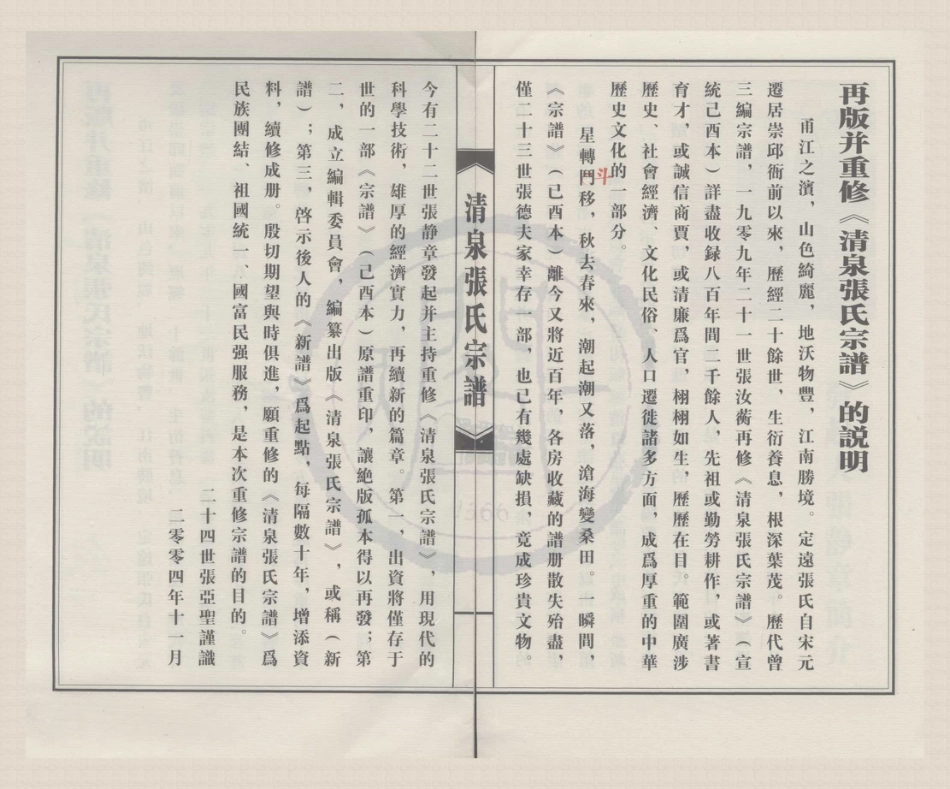 再版并重修《清泉張氏宗譜》的説明
甬江之濱，山色綺麗，地沃物豐，江南勝境。定遠張氏自宋元
遷居崇邱衙前以來，歷經二十餘世，生衍養息，根深葉茂。歷代曾
三編宗譜，一九零九年二十一世張汝蘅再修《清泉張氏宗譜》（宣
統己酉本）詳盡收録八百年間二千餘人，先祖或勤勞耕作，或著書
育才，或誠信商賈，或清廉爲官，栩栩如生，歷歷在目。範圍廣涉
歷史、社會經濟、文化民俗、人口遷徙諸多方面，成爲厚重的中華
歷史文化的一部分。
星轉鬥移，秋去春來，潮起潮又落，滄海變桑田。一瞬間，
斗
《宗譜》（己酉本）離今又將近百年，各房收藏的譜册散失殆盡，
僅二十三世張德夫家幸存一部，也已有幾處缺損，竟成珍貴文物。
清泉張氏宗譜
今有二十二世張静章發起并主持重修《清泉張氏宗譜》，用現代的
科學技術，雄厚的經濟實力，再續新的篇章。第一，出資將僅存于
世的一部《宗譜》（己酉本）原譜重印，讓絶版孤本得以再發；第
二，成立編輯委員會，編纂出版《清泉張氏宗譜》，或稱（新
譜）；第三，啓示後人的《新譜》爲起點，每隔數十年，增添資
料，續修成册。殷切期望與時俱進，願重修的《清泉張氏宗譜》爲
民族團結、祖國統一、國富民强服務，是本次重修宗譜的目的。
二十四世張亞聖謹識
二零零四年十一月
1566